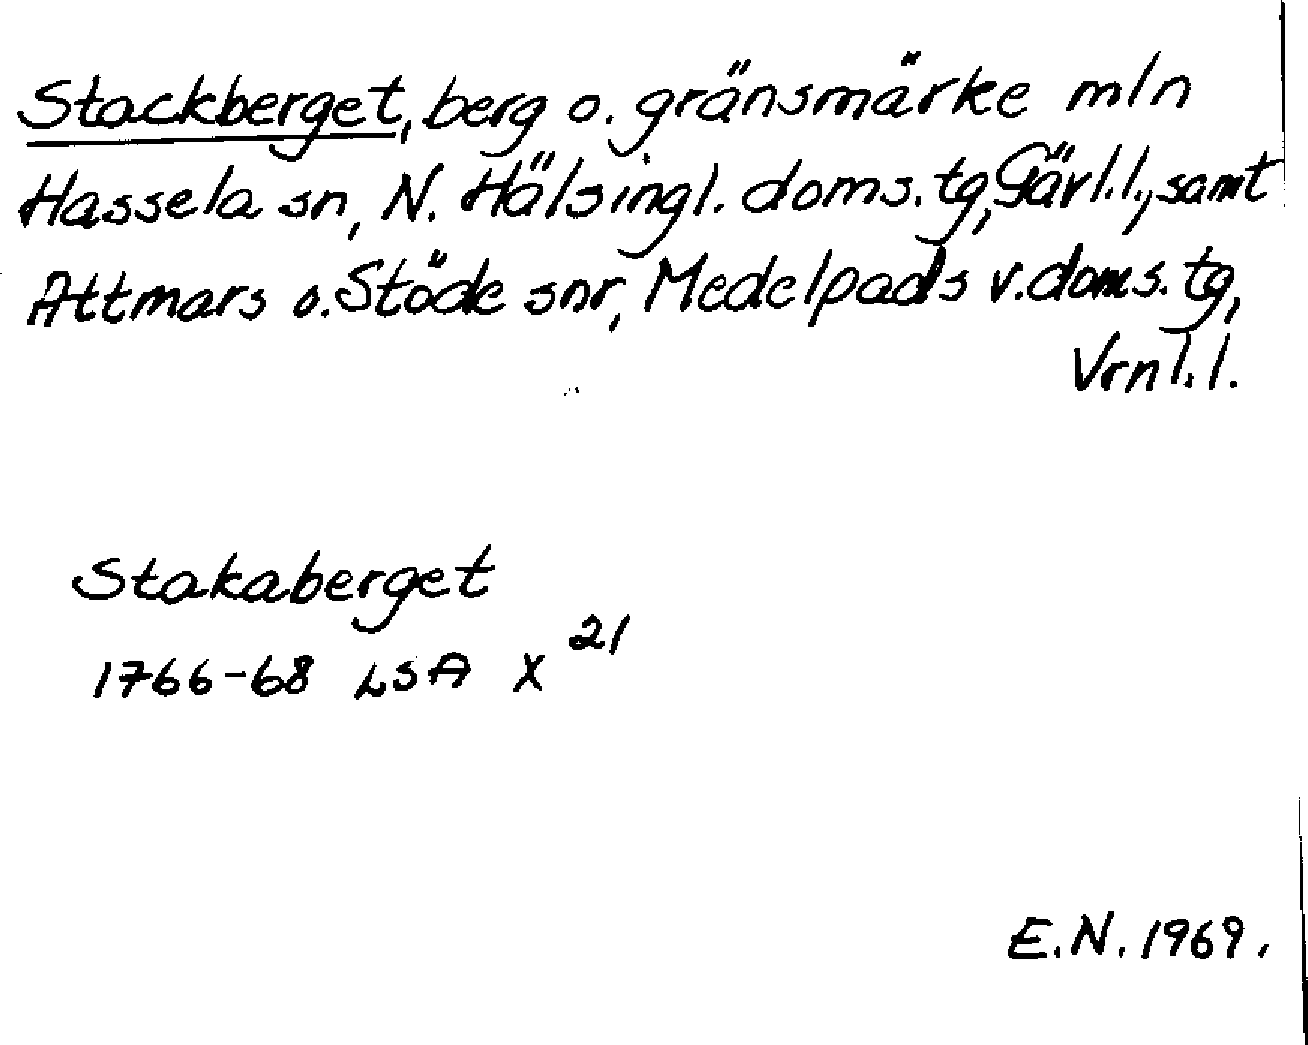 Stackberget, berg o. gränsmärke mln
Hassela sn, N. Hälsingl. doms. tg, Gävl. l., samt
Attmars o. Stöde snr, Medelpads v. doms. tg,
Vrnl. l.
Stakaberget
1766-68 LSA X 21
E.N. 1969.